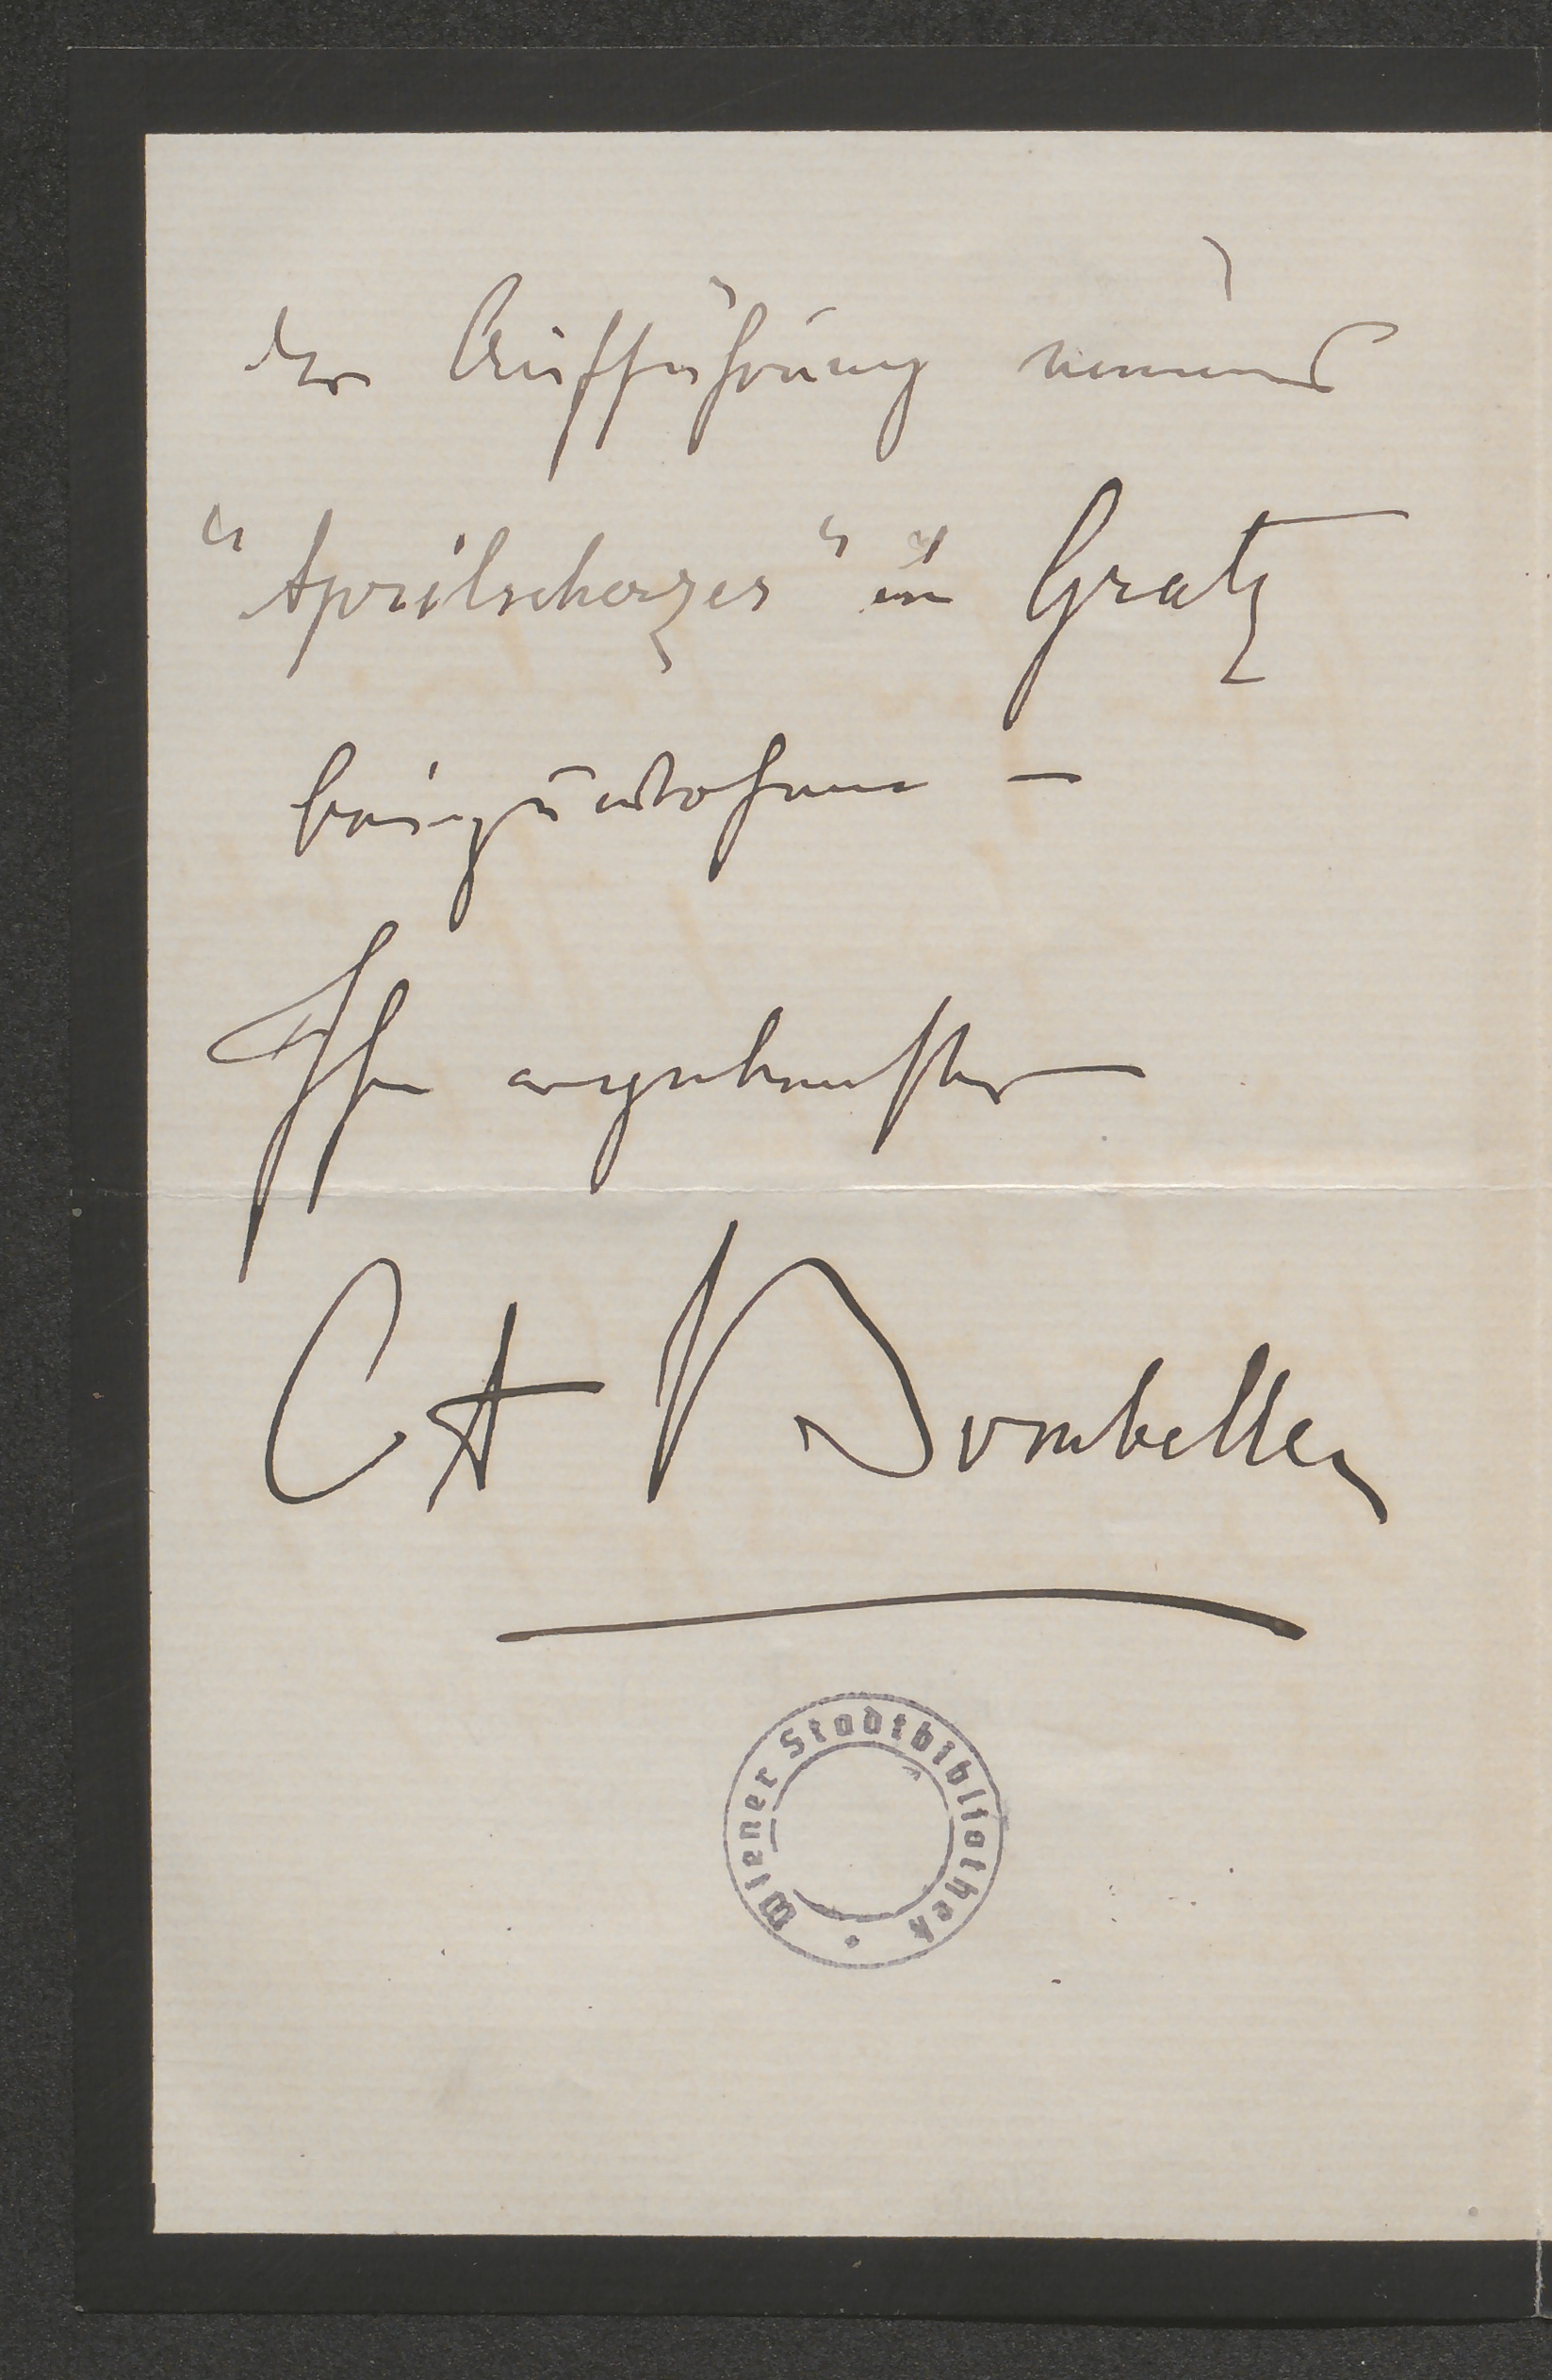 der Aufführung meines
"Aprilscherzes" in Gratz
beizuwohnen –
Ihr ergebenster
Ct Bombelles
Wiener Stadtbibliothek